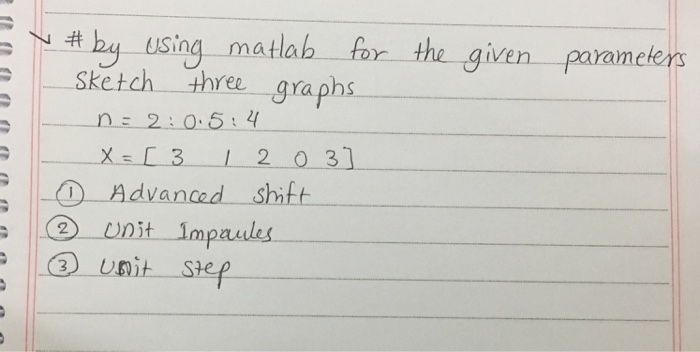 # by using matlab for the given parameters
Sketch three graphs
n = 2 : 0.5 : 4
X = [ 3 1 2 0 3]
① Advanced shift
② Unit Impaules
③ Unit step